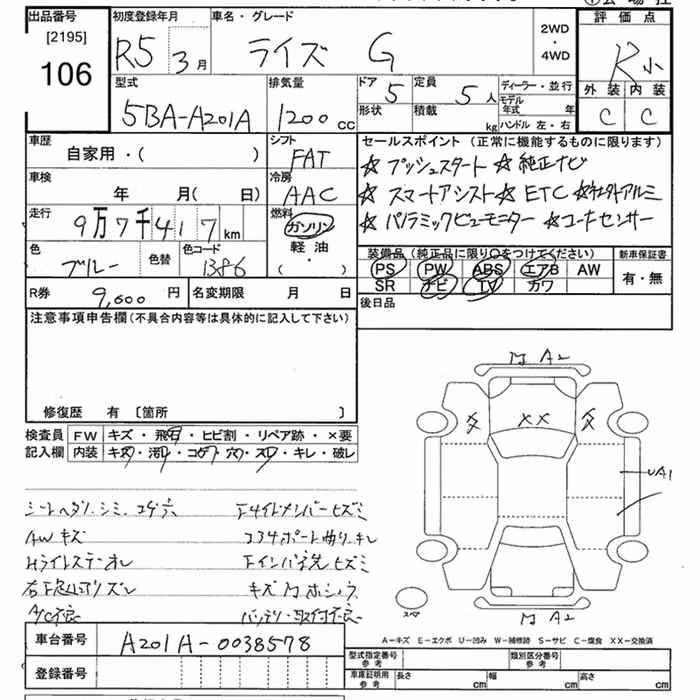 出品番号 初度登録年月 車名・グレード 2WD・4WD 評価点
[2195]
106 R5 3月 ライズ G R小
外装 内装
C C
型式 排気量 ドア 定員 ディーラー・並行
5BA-A201A 1200cc 5 5人 モデル年式 年
形状 積載 kg ハンドル 左・右
車歴 シフト セールスポイント(正常に機能するものに限ります)
自家用・( ) FAT ☆プッシュスタート ☆純正ナビ
車検 冷房 ☆スマートアシスト ☆ETC ☆社外アルミ
年 月( 日) AAC
走行 燃料 ☆パノラミックビューモニター ☆コーナーセンサー
9万7千417km ガソリン
軽油
( ・ )
色 色替 色コード 装備品(純正品に限り○をつけてください) 新車保証書
ブルー PS PW ABS エアB AW 有・無
SR ナビ TV カワ
R券 9,600円 名変期限 月 日 後日品
注意事項申告欄(不具合内容等は具体的に記入して下さい)
修復歴 有 〔箇所 〕
検査員 FW キズ・飛石・ヒビ割・リペア跡・×要
記入欄 内装 キズ・汚レ・コゲ・穴・スレ・キレ・破レ
A2
XX
UA1
A2
シートヘタリ、シミ、コゲ穴
AWキズ
バッテリー取付不良
A/C不良
A-キズ E-エクボ U-凹み W-補修跡 S-サビ C-腐食 XX-交換済
車台番号 A201A-0038578
登録番号
型式指定番号 参考 類別区分番号 参考
車庫証明用 参考 長さ cm 幅 cm 高さ cm